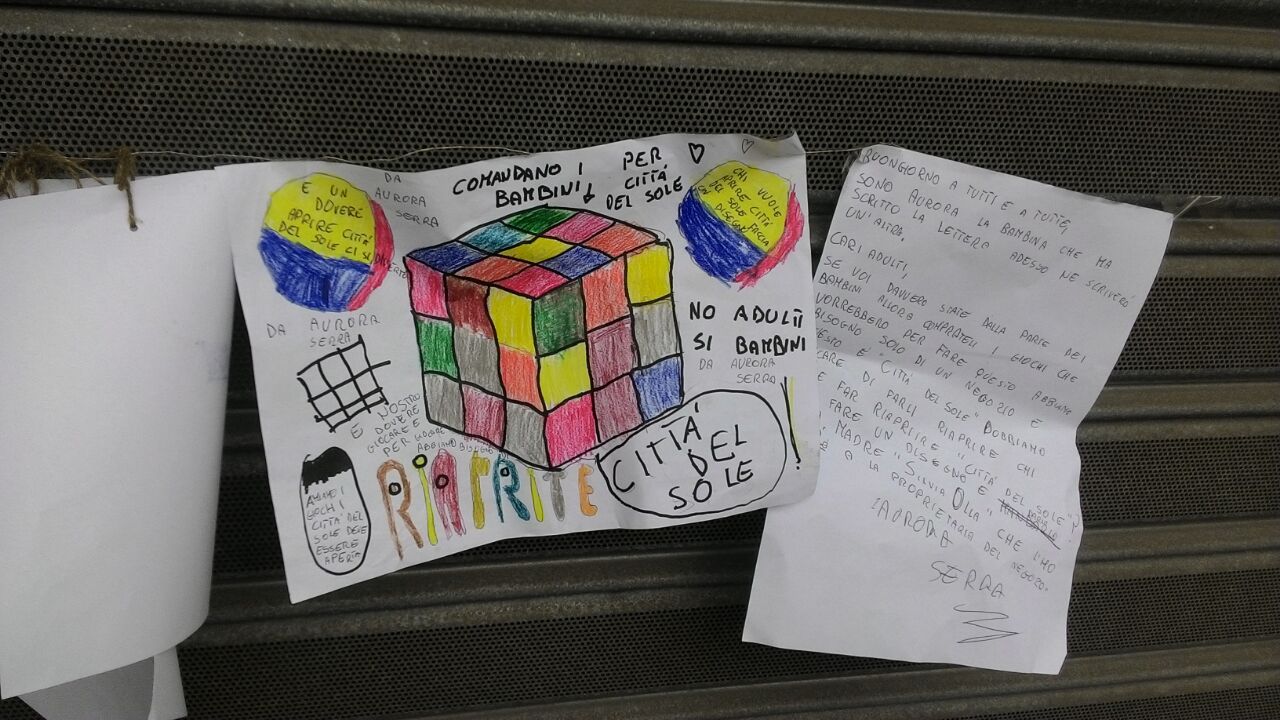 E UN
DOVERE
APRIRE CITTÁ
DEL SOLE CI SI
DA
AURORA
SERRA
COMANDANO I
BAMBINI
PER
CITTÁ
DEL SOLE
CHI VUOLE
APRIRE CITTÁ
DEL SOLE FACCIA
DISEGNI
DA AURORA
SERRA
NO ADULTI
SI BAMBINI
DA AURORA
SERRA
È NOSTRO
DOVERE
GIOCARE E
PER GIOCARE
ABBIAMO BISOGNO
RIAPRITE
CITTÁ
DEL
SOLE
CITTÁ DEL
SOLE DEVE
ESSERE
APERTA
BUONGIORNO A TUTTI E A TUTTE,
SONO AURORA LA BAMBINA CHE HA
SCRITTO LA LETTERA ADESSO NE SCRIVERÓ
UN'ALTRA.
CARI ADULTI,
SE VOI DAVVERO STATE DALLA PARTE DEI
BAMBINI ALLORA COMPRATELI I GIOCHI CHE
VORREBBERO PER FARE QUESTO ABBIAMO
BISOGNO SOLO DI UN NEGOZIO E
CITTÁ DEL SOLE" DOBBIAMO
DI FARLI RIAPRIRE CHI
FAR RIAPRIRE "CITTÁ DEL SOLE"?
FARE UN "DISEGNO E
MADRE "SILVIA OLLA" CHE L'HO
A LA PROPRIETARIA DEL NEGOZIO.
AURORA
SERRA